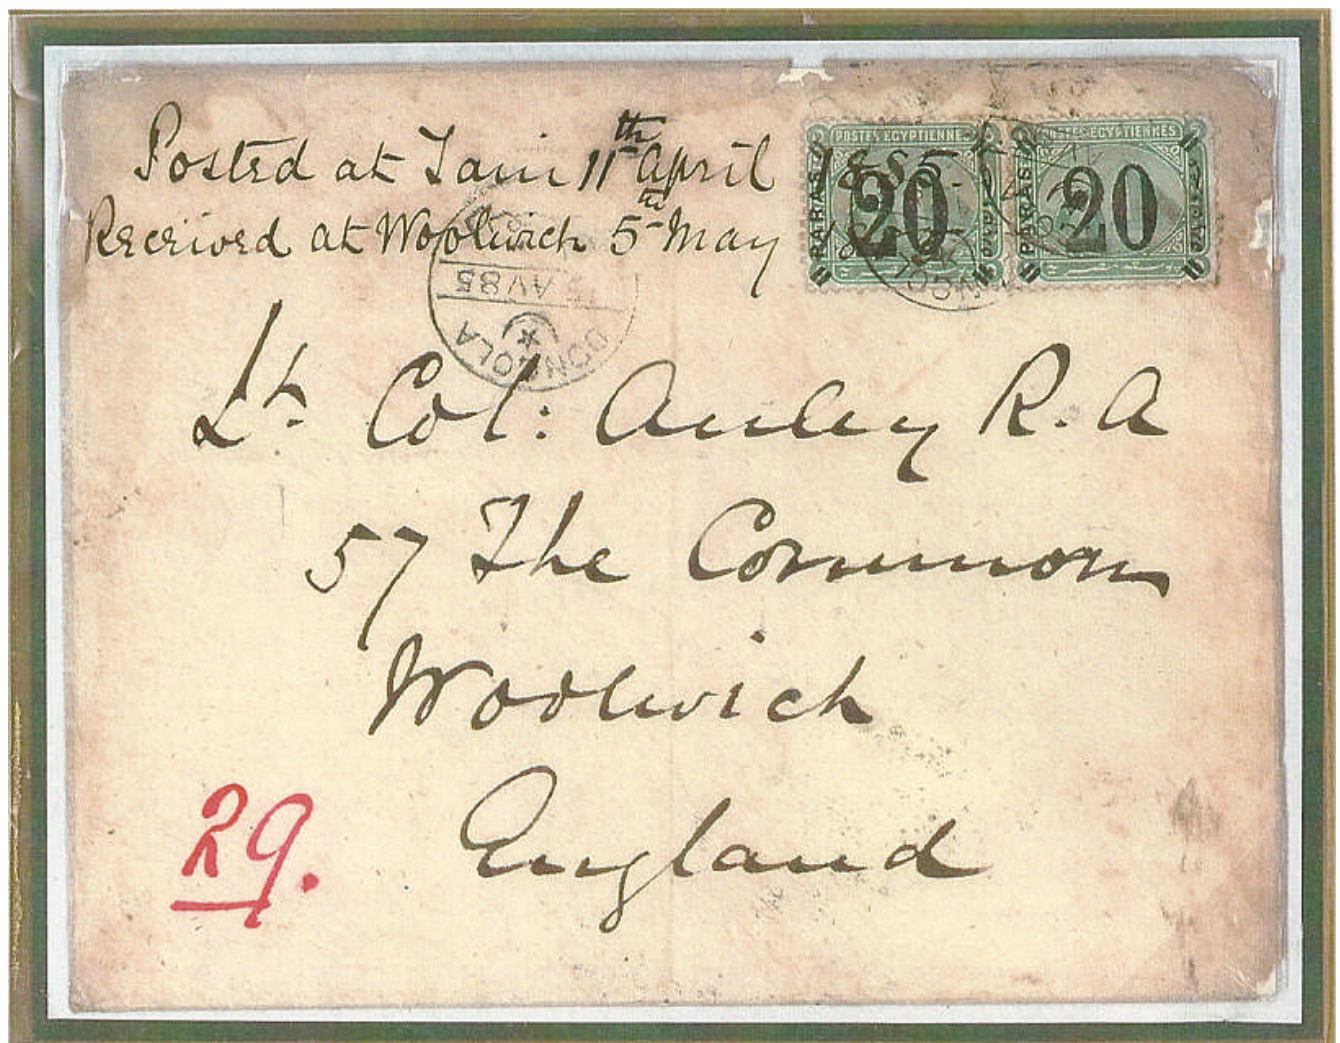 Posted at Tani 11th April 1885
Received at Woolwich 5th May 18
POSTES EGYPTIENNES
20
PARAS
POSTES EGYPTIENNES
20
PARAS
AV 85
DONGOLA
Lt. Col: Auley R. A
57 The Common
Woolwich
England
29.